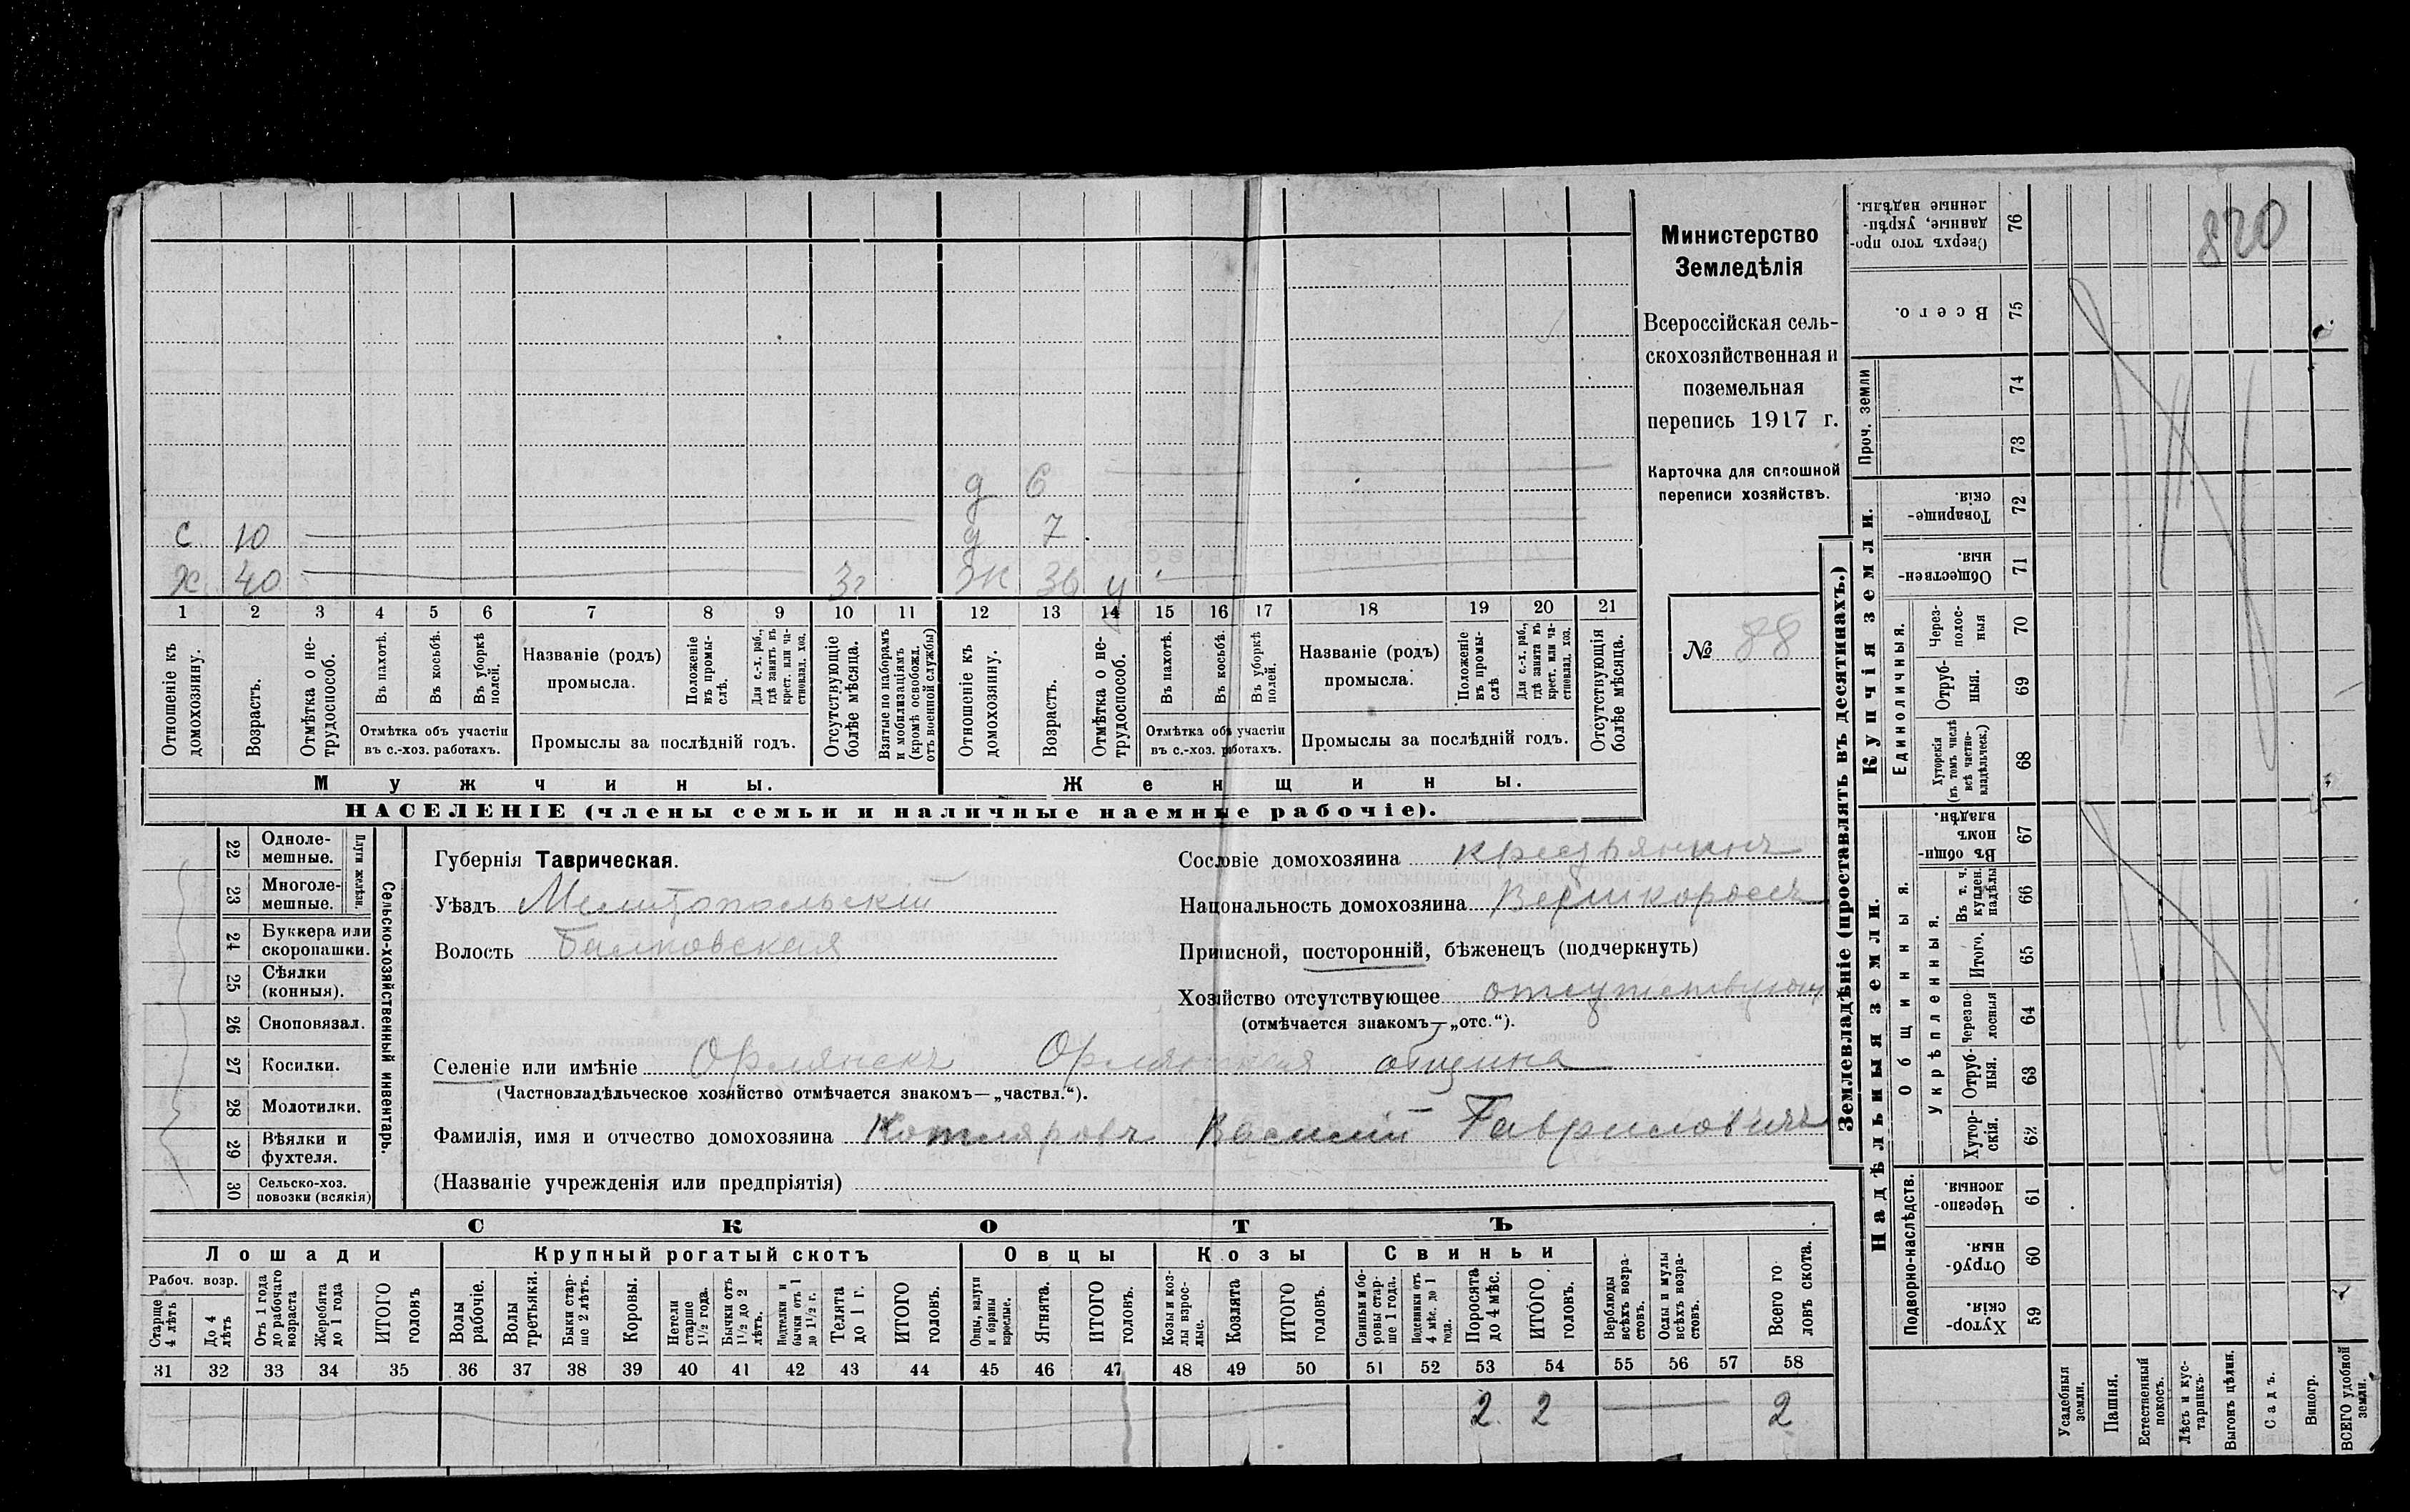 820
Министерство
Земледѣлія
Всероссійская сель-
скохозяйственная и
поземельная
перепись 1917 г.
Карточка для сплошной
переписи хозяйствъ.
№ 88
д 6
с 10 д 7
х 40 3г Ж 36 у
1 2 3 4 5 6 7 8 9 10 11 12 13 14 15 16 17 18 19 20 21
Отношеніе къ домохозяину.
Возрастъ.
Отмѣтка о не-трудоспособ.
Въ пахотѣ.
Въ косьбѣ.
Въ уборкѣ полей.
Отмѣтка объ участіи
въ с.-хоз. работахъ.
Названіе (родъ)
промысла.
Положеніе въ промы-слѣ.
Для с.-х. раб., гдѣ занятъ въ крест. или ча-стновлад. хоз.
Промыслы за послѣдній годъ.
Отсутствующіе болѣе мѣсяца.
Взятые по наборамъ и мобилизаціямъ (кромѣ освобожд. отъ военной службы)
Отношеніе къ домохозяину.
Возрастъ.
Отмѣтка о не-трудоспособ.
Въ пахотѣ.
Въ косьбѣ.
Въ уборкѣ полей.
Отмѣтка объ участіи
въ с.-хоз. работахъ.
Названіе (родъ)
промысла.
Положеніе въ промы-слѣ
Для с.-х. раб., гдѣ занята въ крест. или ча-стновлад. хоз.
Промыслы за послѣдній годъ.
Отсутствующія болѣе мѣсяца.
Мужчины. Женщины.
НАСЕЛЕНІЕ (члены семьи и наличные наемные рабочіе).
22 Одноле-мешные.
23 Многоле-мешные.
Плуги желѣзн.
24 Буккера или скоропашки.
25 Сѣялки (конныя).
26 Сноповязал.
27 Косилки.
28 Молотилки.
29 Вѣялки и фухтеля.
30 Сельско-хоз. повозки (всякія)
Сельско-хозяйственный инвентарь.
Губернія Таврическая.
Уѣздъ Мелитопольскій
Волость Балковская
Сословіе домохозяина крестьянинъ
Націнальность домохозяина Великороссъ
Приписной, посторонній, бѣженецъ (подчеркнуть)
Хозяйство отсутствующее отсутствующ
(отмѣчается знакомъ—„отс.“).
Селеніе или имѣніе Орлянскъ Орлянская община
(Частновладѣльческое хозяйство отмѣчается знакомъ—„частвл.“).
Фамилія, имя и отчество домохозяина Котляровъ Василій Гавриловичъ
(Названіе учрежденія или предпріятія)
СКОТЪ
Лошади Крупный рогатый скотъ Овцы Козы Свиньи
Рабоч. возр.
Старше 4 лѣтъ
До 4 лѣтъ
Отъ 1 года до рабочаго возраста
Жеребята до 1 года
ИТОГО головъ
Волы рабочіе.
Волы третьяки.
Быки стар-ше 2 лѣтъ.
Коровы.
Нетели старше 1½ года.
Бычки отъ 1½ до 2 лѣтъ.
Подтелки и бычки отъ 1 до 1½ г.
Телята до 1 г.
ИТОГО головъ.
Овцы, валухи и бараны взрослые.
Ягнята.
ИТОГО головъ.
Козы и коз-лы взрос-лые.
Козлята
ИТОГО головъ.
Свиньи и бо-ровы стар-ше 1 года.
Подсвинки отъ 4 мѣс. до 1 года.
Поросята до 4 мѣс.
ИТОГО головъ.
Верблюды всѣхъ возра-стовъ.
Ослы и мулы всѣхъ возра-стовъ.
Всего го-ловъ скота.
31 32 33 34 35 36 37 38 39 40 41 42 43 44 45 46 47 48 49 50 51 52 53 54 55 56 57 58
2 2 2
Землевладѣніе (проставлять въ десятинахъ.)
Купчія земли.
Надѣльныя земли.
Сверхъ того про-данные, укрѣп-ленные надѣлы. 76
Всего. 75
Проч. земли
74
73
Товарище-скія. 72
Обществен-ныя. 71
Единоличныя.
Через-полос-ныя 70
Отруб-ныя. 69
Хуторскія (въ томъ числѣ всѣ частно-владѣльческ.) 68
Общинныя.
Въ общин-номъ владѣн. 67
Укрѣпленныя.
Въ т. ч. куплен. надѣлы 66
Итого. 65
Черезпо-лосныя 64
Отруб-ныя. 63
Хутор-скія. 62
Подворно-наслѣдств.
Черезпо-лосныя. 61
Отруб-ныя. 60
Хутор-скія. 59
Усадебныя земли.
Пашня.
Естественный покосъ.
Лѣсъ и кус-тарникъ.
Выгонъ цѣлин.
Садъ.
Виногр.
ВСЕГО удобной земли.